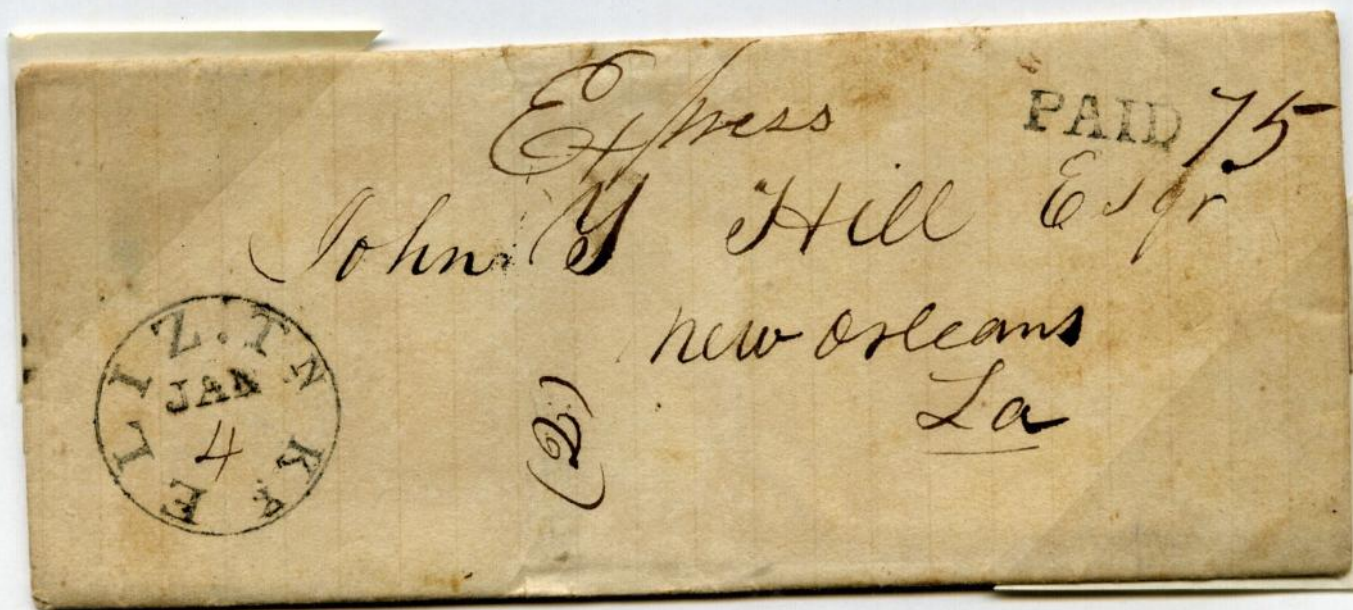 Express
PAID 75
John Y Hill Esqr
New Orleans
La
(2)
ELIZ.TN KY
JAN
4